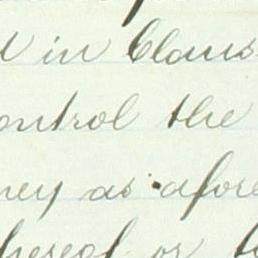 in Claus
ontrol the
ney as afore
hereof or